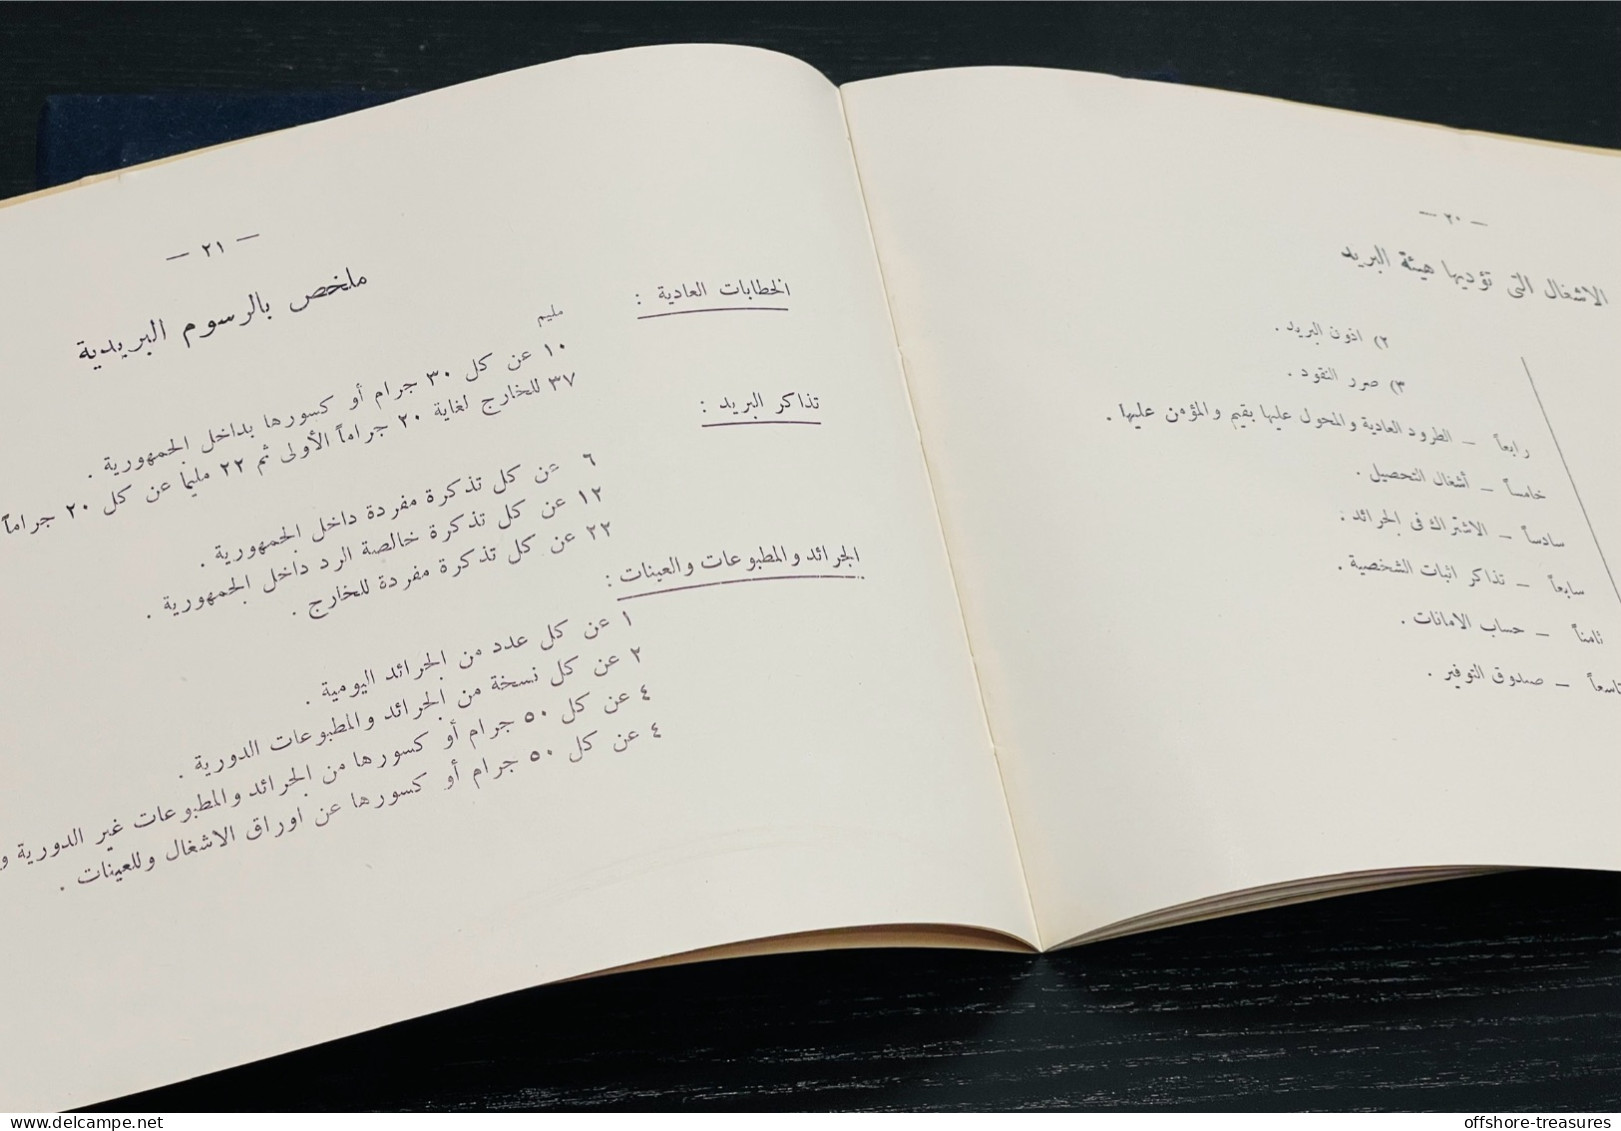 — ٢٠ —
الاشغال التى تؤديها هيئة البريد
٢) اذون البريد .
٣) صرر النقود .
رابعاً — الطرود العادية والمحول عليها بقيم والمؤمن عليها .
خامساً — أشغال التحصيل .
سادساً — الاشتراك فى الجرائد .
سابعاً — تذاكر اثبات الشخصية .
ثامناً — حساب الامانات .
تاسعاً — صندوق التوفير .
— ٢١ —
ملخص بالرسوم البريدية
الخطابات العادية :
مليم
١٠ عن كل ٣٠ جرام أو كسورها بداخل الجمهورية .
٣٧ للخارج لغاية ٢٠ جراماً الأولى ثم ٢٢ مليما عن كل ٢٠ جراماً
تذاكر البريد :
٦ عن كل تذكرة مفردة داخل الجمهورية .
١٢ عن كل تذكرة خالصة الرد داخل الجمهورية .
٢٢ عن كل تذكرة مفردة للخارج .
الجرائد والمطبوعات والعينات :
١ عن كل عدد من الجرائد اليومية .
٢ عن كل نسخة من الجرائد والمطبوعات الدورية .
٤ عن كل ٥٠ جرام أو كسورها من الجرائد والمطبوعات غير الدورية و
٤ عن كل ٥٠ جرام أو كسورها عن اوراق الاشغال وللعينات .
offshore-treasures